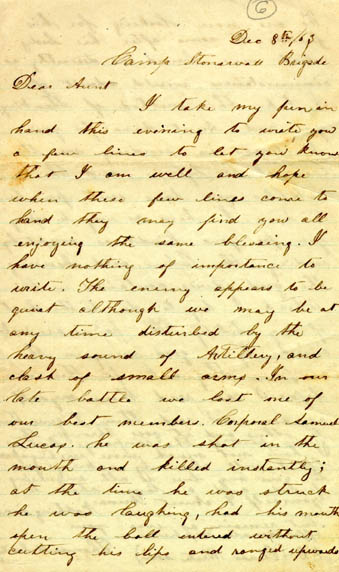 6
Dec 8th/63
Camp Stonewall Brigade
Dear Aunt
I take my pen in
hand this evening to write you
a few lines to let you know
that I am well and hope
when these few lines come to
hand they may find you all
enjoying the same blessing. I
have nothing of importance to
write. The enemy appears to be
quiet although we may be at
any time disturbed by the
heavy sound of Artillery, and
clash of small arms. In our
late battle we lost one of
our best members. Corporal Samuel
Lucas. he was shot in the
mouth and killed instantly;
at the time he was struck
he was laughing, had his mouth
open the ball entered without
cutting his lips and ranged upwards